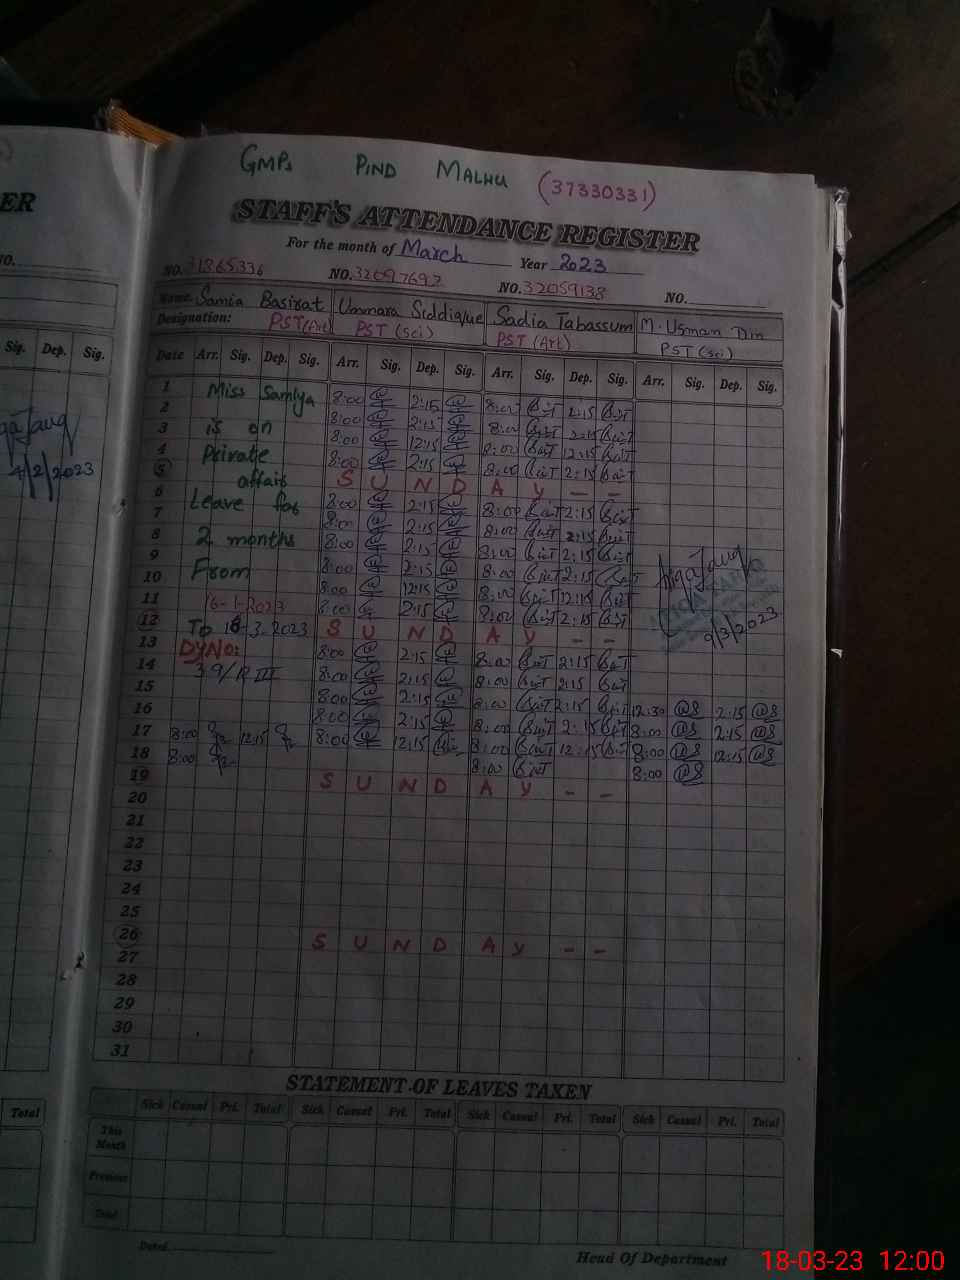 GMPs PIND MALHU (37330331)
ER
STAFF'S ATTENDANCE REGISTER
For the month of March Year 2023
NO.
NO. 31865336 NO. 32097692 NO. 32059138 NO.
Name. Samia Basirat Ummara Siddique Sadia Tabassum M. Usman Din
Designation: PST (Art) PST (Sci) PST (Art) PST (sci)
Sig. Dep. Sig.
Date Arr. Sig. Dep. Sig. Arr. Sig. Dep. Sig. Arr. Sig. Dep. Sig. Arr. Sig. Dep. Sig.
1 Miss Samiya 8:00 2:15 8:00 2:15
2 8:00 2:15 8:00 2:15
3 is on 8:00 12:15 8:00 12:15
4 Private 8:00 2:15 8:00 2:15
4/2/2023
5 affairs S U N D A Y - -
6 Leave for 8:00 2:15 8:00 2:15
7 8:00 2:15 8:00 2:15
8 2 months 8:00 2:15 8:00 2:15
9 8:00 2:15 8:00
10 From 8:00 12:15 8:00 12:15
11 16-1-2023 8:00 2:15 8:00 2:15
9/3/2023
12 To 16-3-2023 S U N D A Y - -
13 DYNO: 8:00 2:15 8:00 2:15
14 39/R III 8:00 2:15 8:00 2:15
15 8:00 2:15 8:00 2:15 12:30 2:15
16 8:00 2:15 8:00 2:15 8:00 2:15
17 8:00 12:15 8:00 12:15 8:00 12:15 8:00 12:15
18 8:00 8:00 8:00
19 S U N D A Y - -
20
21
22
23
24
25
26 S U N D A Y - -
27
28
29
30
31
STATEMENT OF LEAVES TAXEN
Total
Sick Casual Pri. Total Sick Casual Pri. Total Sick Casual Pri. Total Sick Casual Pri. Total
This Month
Previous
Total
Dated
Head Of Department
18-03-23 12:00